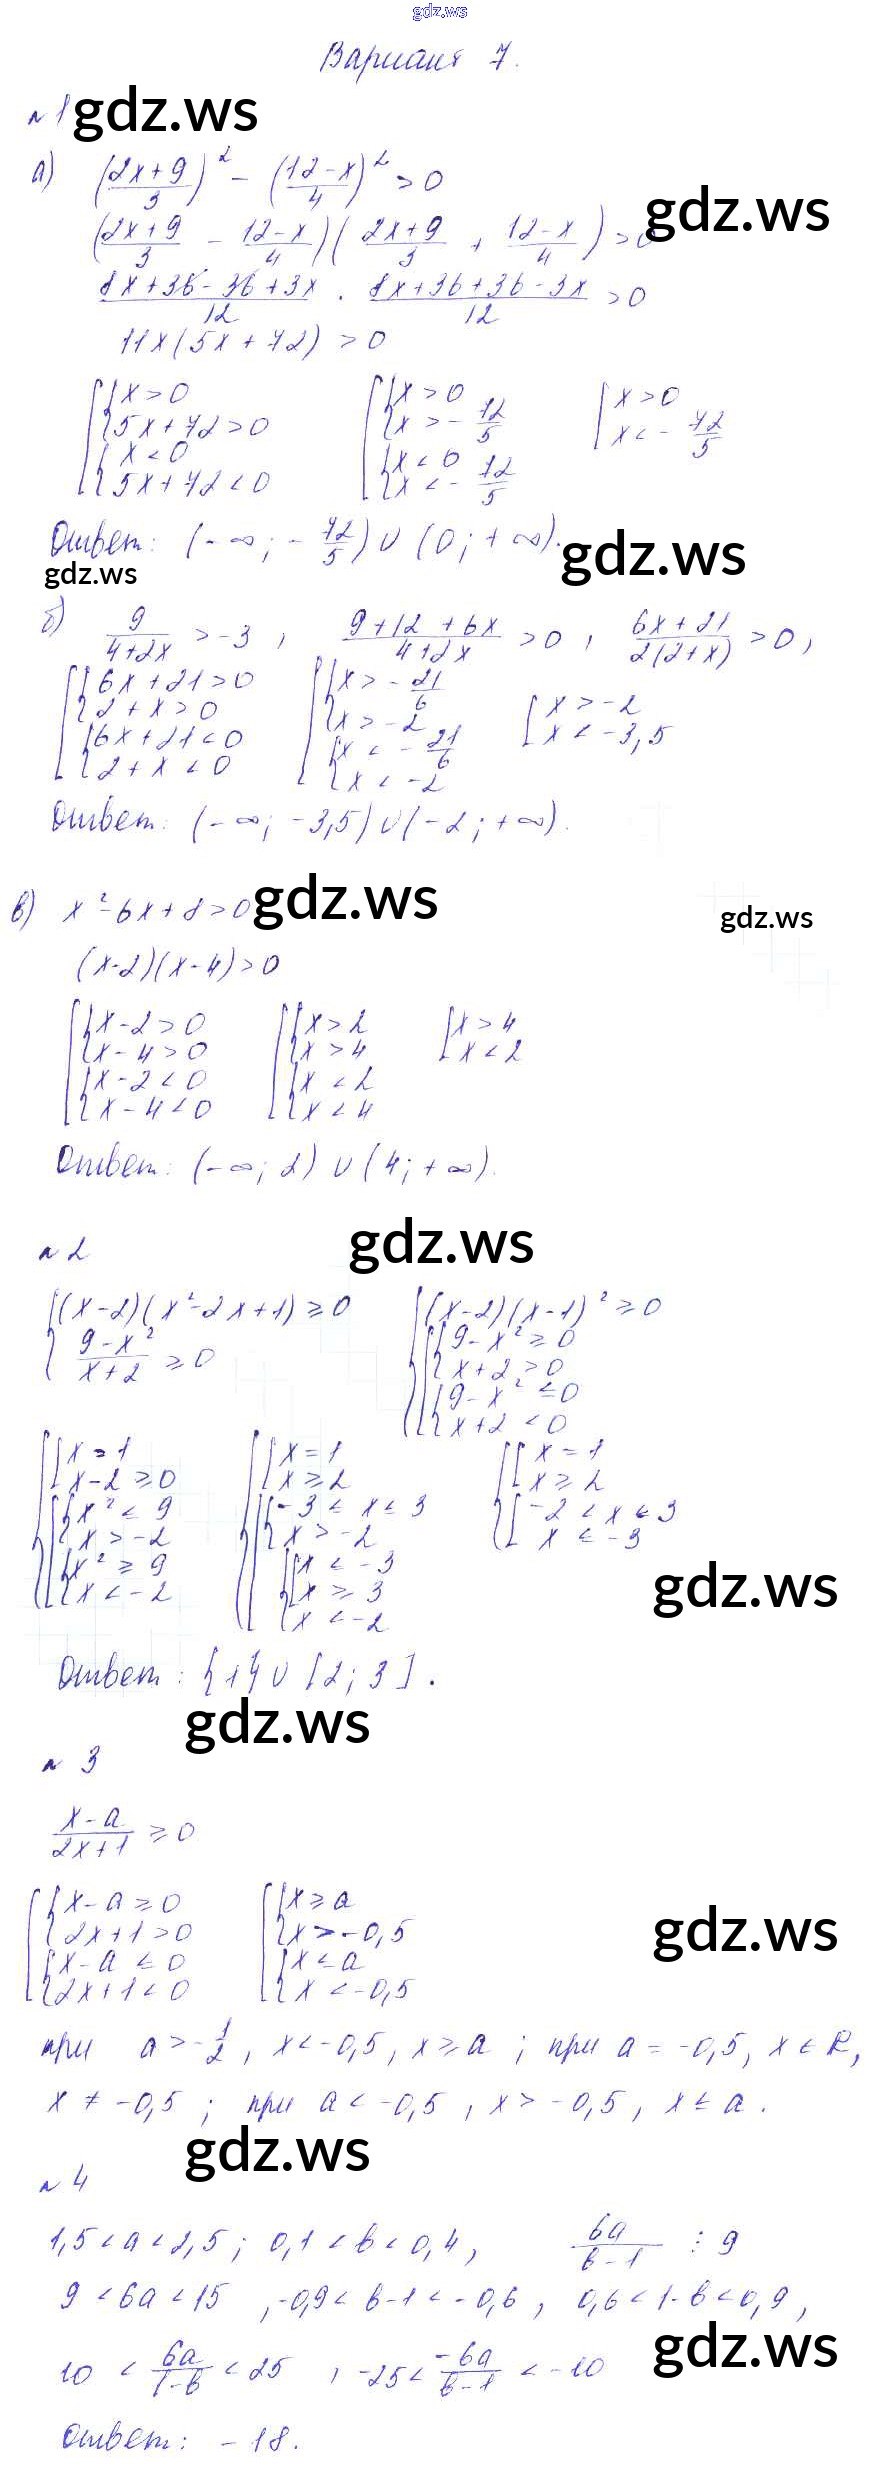 gdz.ws
Вариант 7.
№1 gdz.ws
а) ((2x+9)/3)² - ((12-x)/4)² > 0
gdz.ws
((2x+9)/3 - (12-x)/4)((2x+9)/3 + (12-x)/4) > 0
(8x+36-36+3x)/12 · (8x+36+36-3x)/12 > 0
11x(5x+72) > 0
[{x>0 [{x>0 [x>0
5x+72>0 x>-72/5 x<-72/5
{x<0 {x<0
5x+72<0 x<-72/5
Ответ: (-∞; -72/5) ∪ (0; +∞).
gdz.ws
gdz.ws
б) 9/(4+2x) > -3, (9+12+6x)/(4+2x) > 0, (6x+21)/(2(2+x)) > 0,
[{6x+21>0 [{x>-21/6 [x>-2
2+x>0 x>-2 x<-3,5
{6x+21<0 {x<-21/6
2+x<0 x<-2
Ответ: (-∞; -3,5) ∪ (-2; +∞).
в) x²-6x+8>0 gdz.ws
gdz.ws
(x-2)(x-4)>0
[{x-2>0 [{x>2 [x>4
x-4>0 x>4 x<2
{x-2<0 {x<2
x-4<0 x<4
Ответ: (-∞; 2) ∪ (4; +∞).
№2 gdz.ws
{(x-2)(x²-2x+1)≥0 {(x-2)(x-1)²≥0
(9-x²)/(x+2)≥0 [{9-x²≥0
x+2>0
{9-x²≤0
x+2<0
{[x=1 {[x=1 {[x=1
x-2≥0 x≥2 x≥2
[{x²≤9 [{-3≤x≤3 [-2<x≤3
x>-2 x>-2 x≤-3
{x²≥9 {[x≤-3
x<-2 x≥3
x<-2
gdz.ws
Ответ: {1} ∪ [2; 3].
gdz.ws
№ 3
(x-a)/(2x+1) ≥ 0
[{x-a≥0 [{x≥a
2x+1>0 x>-0,5
{x-a≤0 {x≤a
2x+1<0 x<-0,5
gdz.ws
при a>-1/2, x<-0,5, x≥a; при a=-0,5, x∈R,
x≠-0,5; при a<-0,5, x>-0,5, x≤a.
gdz.ws
№4
1,5<a<2,5; 0,1<b<0,4, 6a/(b-1) ⋮ 9
9<6a<15, -0,9<b-1<-0,6, 0,6<1-b<0,9,
gdz.ws
10 < 6a/(1-b) < 25, -25 < -6a/(b-1) < -10
Ответ: -18.